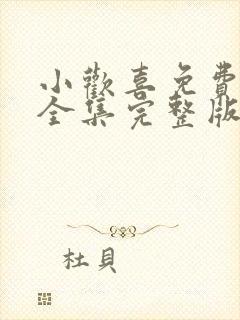 小歡喜免費
全集完整版
杜貝